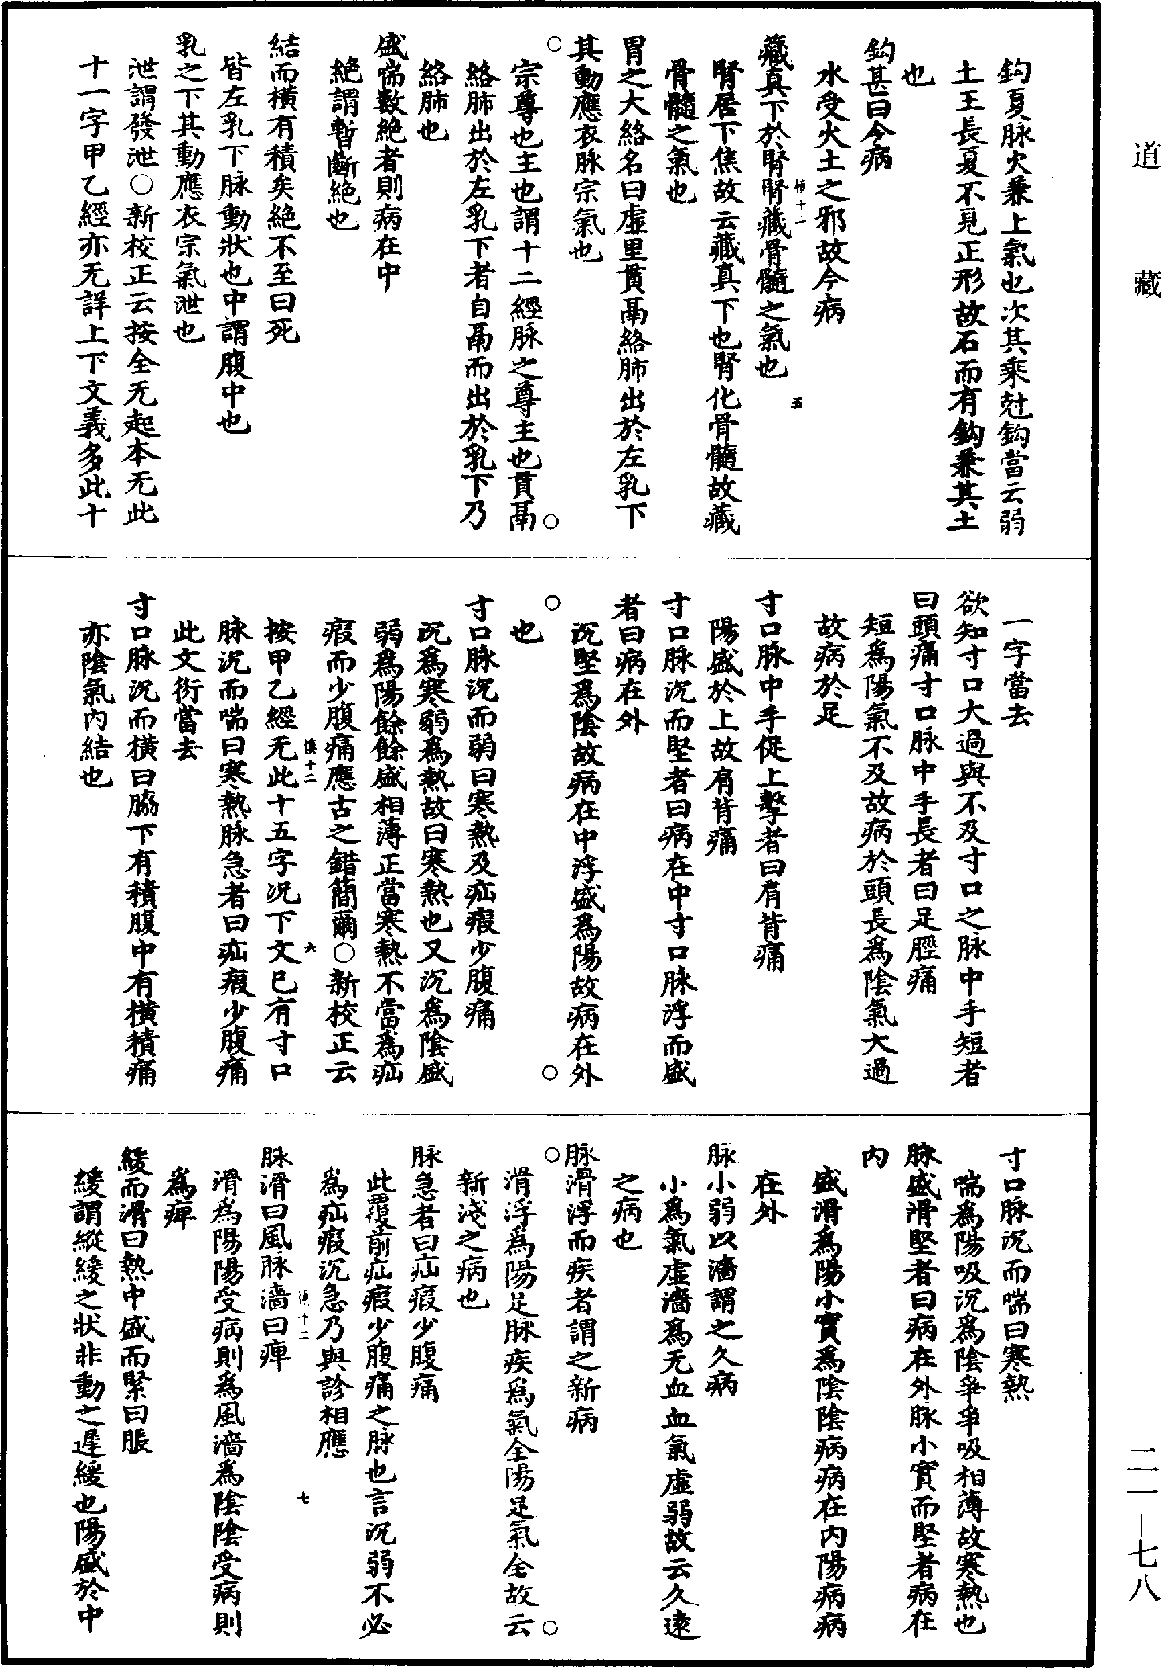 道藏
鈎夏脉火兼土氣也次其乘尅鈎當云弱
土王長夏不見正形故石而有鈎兼其土
也
鈎甚曰今病
水受火土之邪故今病
藏真下於腎腎藏骨髓之氣也
腎居下焦故云藏真下也腎化骨髓故藏
骨髓之氣也
胃之大絡名曰虛里貫鬲絡肺出於左乳下
其動應衣脉宗氣也
宗尊也主也謂十二經脉之尊主也貫鬲
絡肺出於左乳下者自鬲而出於乳下乃
絡肺也
盛喘數絶者則病在中
絶謂暫斷絶也
結而橫有積矣絶不至曰死
皆左乳下脉動狀也中謂腹中也
乳之下其動應衣宗氣泄也
泄謂發泄○新校正云按全无起本无此
十一字甲乙經亦无詳上下文義多此十
一字當去
欲知寸口大過與不及寸口之脉中手短者
曰頭痛寸口脉中手長者曰足脛痛
短爲陽氣不及故病於頭長爲陰氣大過
故病於足
寸口脉中手促上擊者曰肩背痛
陽盛於上故肩背痛
寸口脉沉而堅者曰病在中寸口脉浮而盛
者曰病在外
沉堅爲陰故病在中浮盛爲陽故病在外
也
寸口脉沉而弱曰寒熱及疝瘕少腹痛
沉爲寒弱爲熱故曰寒熱也又沉爲陰盛
弱爲陽餘餘盛相薄正當寒熱不當爲疝
瘕而少腹痛應古之錯簡爾○新校正云
按甲乙經无此十五字況下文已有寸口
脉沉而喘曰寒熱脉急者曰疝瘕少腹痛
此文衍當去
寸口脉沉而橫曰脇下有積腹中有橫積痛
亦陰氣內結也
寸口脉沉而喘曰寒熱
喘爲陽吸沉爲陰爭爭吸相薄故寒熱也
脉盛滑堅者曰病在外脉小實而堅者病在
內
盛滑爲陽小實爲陰陰病病在內陽病病
在外
脉小弱以濇謂之久病
小爲氣虛濇爲无血血氣虛弱故云久遠
之病也
脉滑浮而疾者謂之新病
滑浮爲陽足脉疾爲氣全陽足氣全故云
新淺之病也
脉急者曰疝瘕少腹痛
此覆前疝瘕少腹痛之脉也言沉弱不必
爲疝瘕沉急乃與診相應
脉滑曰風脉濇曰痺
滑爲陽陽受病則爲風濇爲陰陰受病則
爲痺
緩而滑曰熱中盛而緊曰脹
緩謂縱緩之狀非動之遲緩也陽盛於中
二一—七八